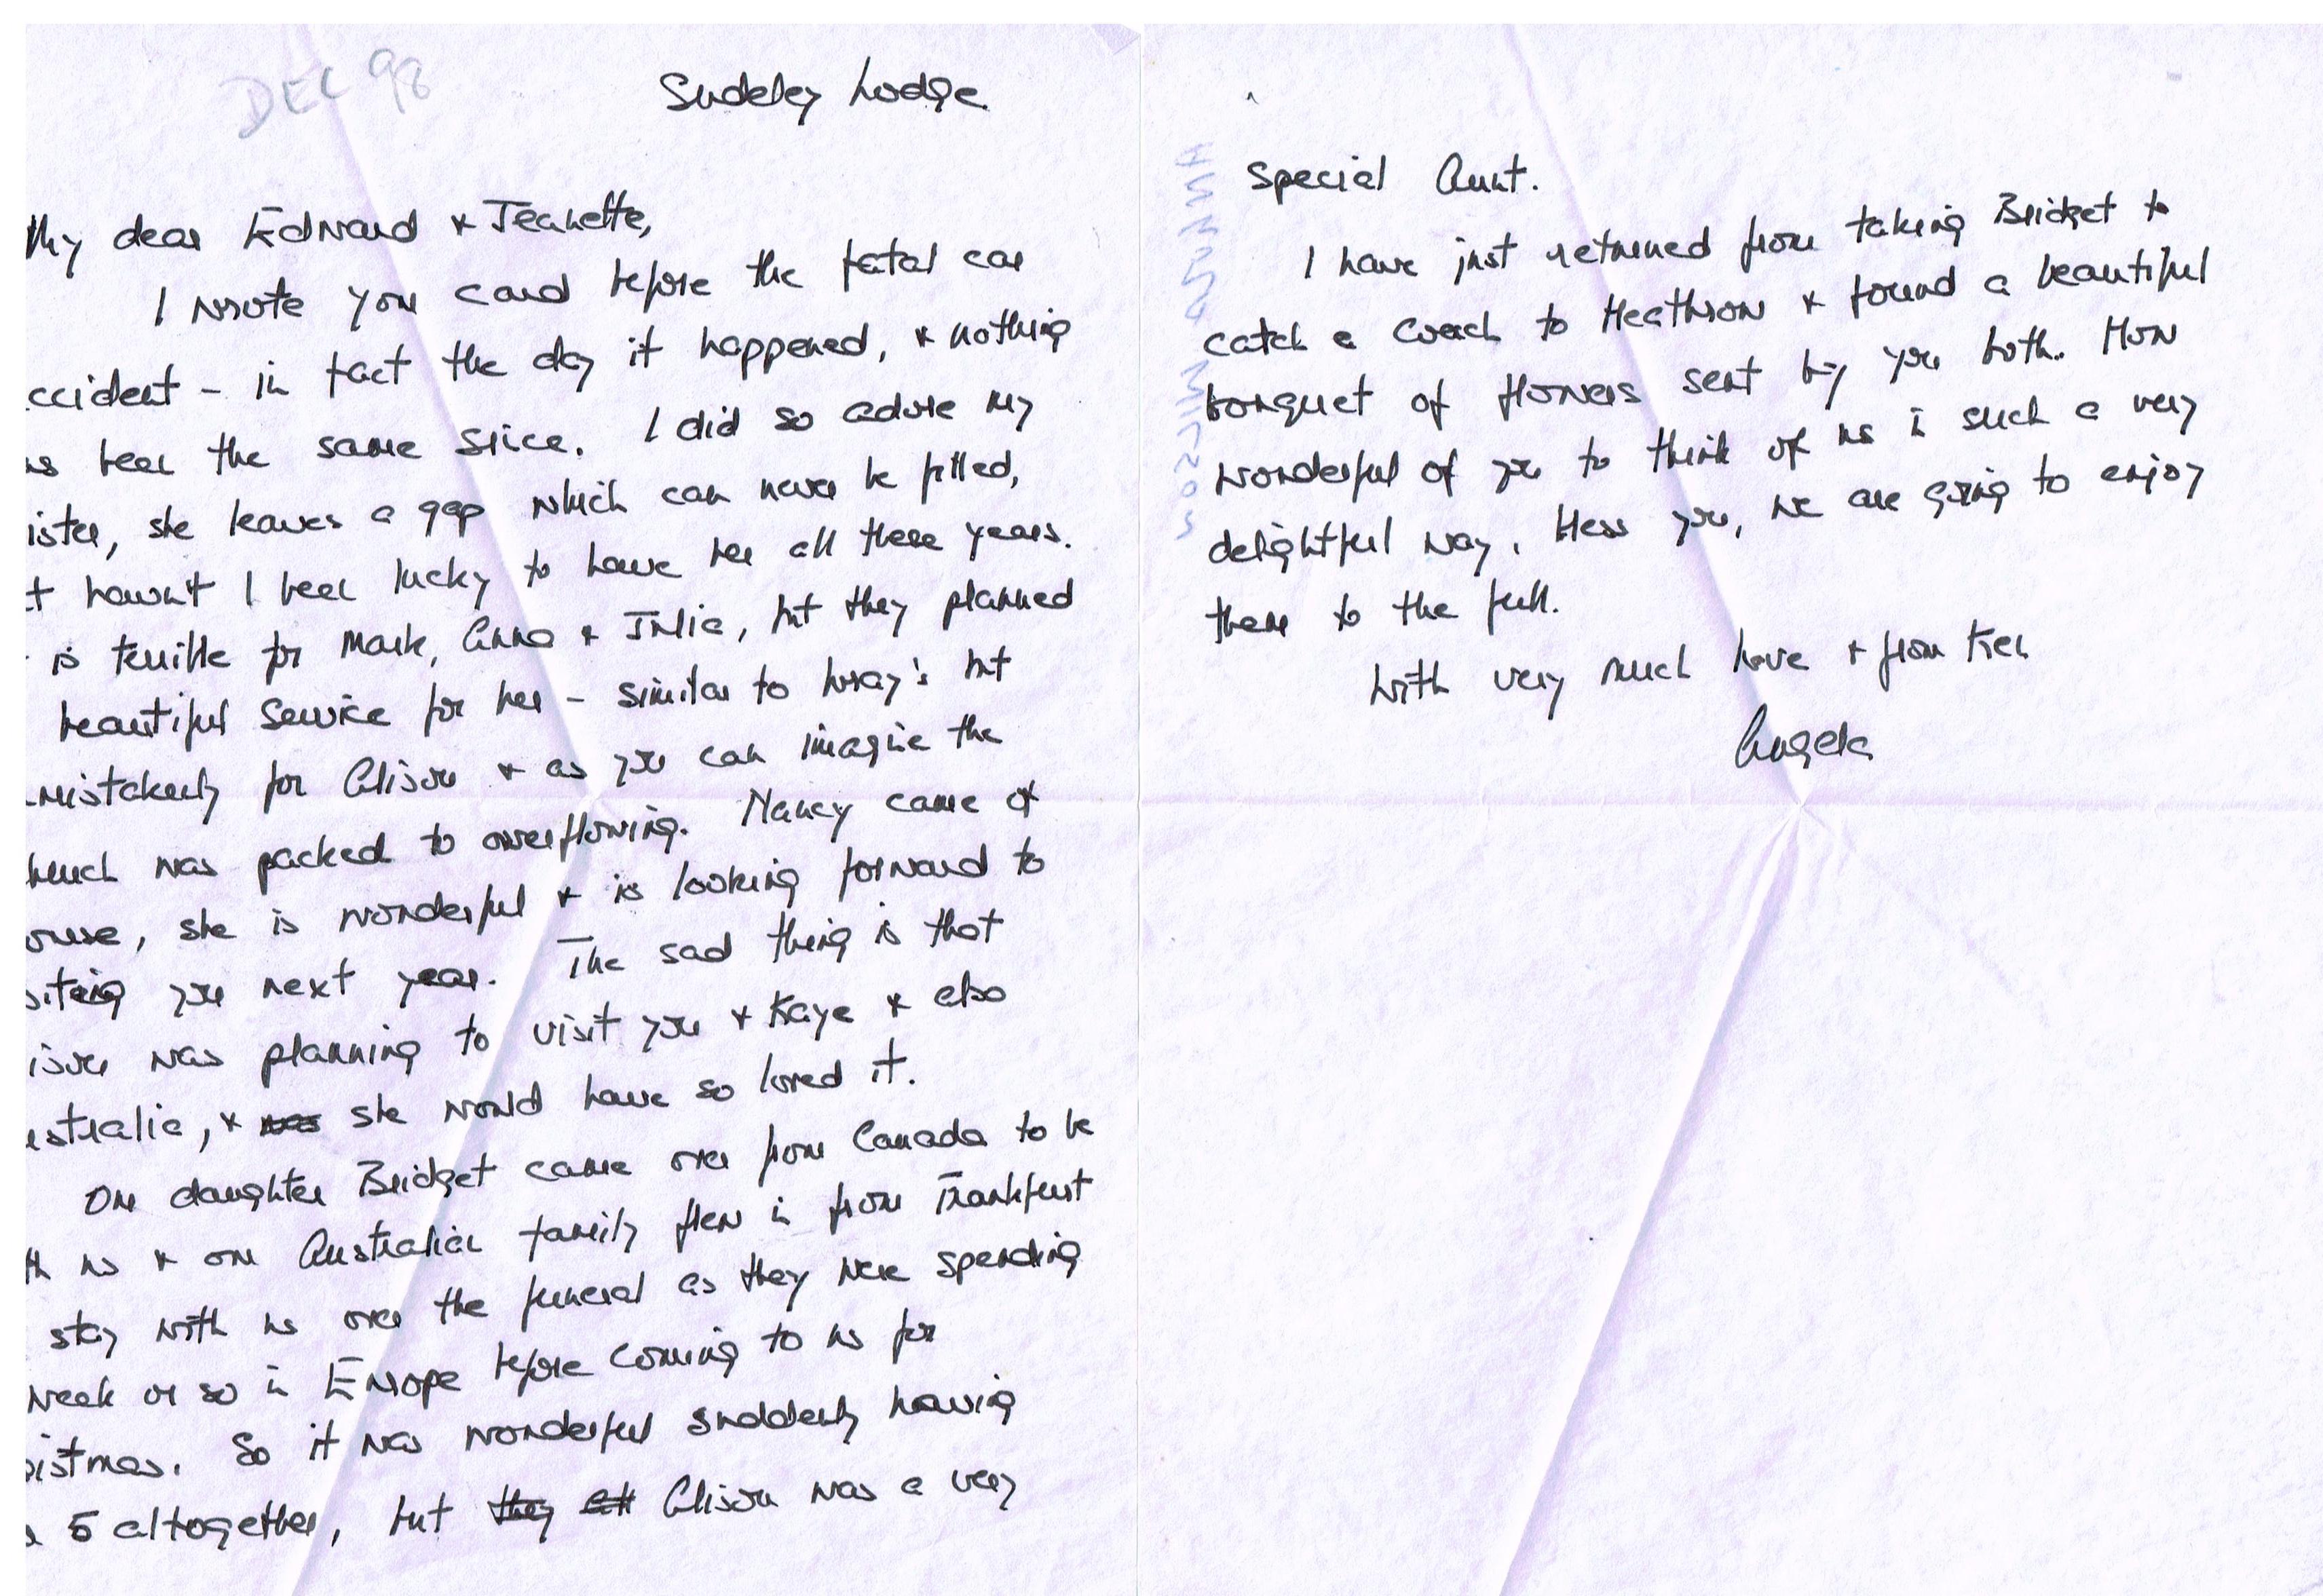 DEC 98
Sudeley Lodge
My dear Edward & Jeanette,
I wrote your card before the fatal car
ccident - in fact the day it happened, & nothing
as been the same since. I did so adore my
ister, she leaves a gap which can never be filled,
t haven't I been lucky to have her all these years.
is terrible for Mark, Anna & Julia, but they planned
beautiful service for her - similar to Wray's but
mistakenly for Alison & as you can imagine the
hurch was packed to overflowing. Nancy came of
ourse, she is wonderful & is looking forward to
siting you next year. The sad thing is that
ison was planning to visit you & Kaye & also
ustralia, & was she would have so loved it.
Our daughter Bridget came over from Canada to be
th us & our Australian family flew in from Frankfurt
stay with us over the funeral as they were spending
week or so in Europe before coming to us for
istmas. So it was wonderful suddenly having
5 altogether, but they all Alison was a very
special Aunt.
I have just returned from taking Bridget to
catch a coach to Heathrow & found a beautiful
bouquet of flowers sent by you both. How
wonderful of you to think of us in such a very
delightful way. Bless you, we are going to enjoy
them to the full.
With very much love & from Ken
Angela